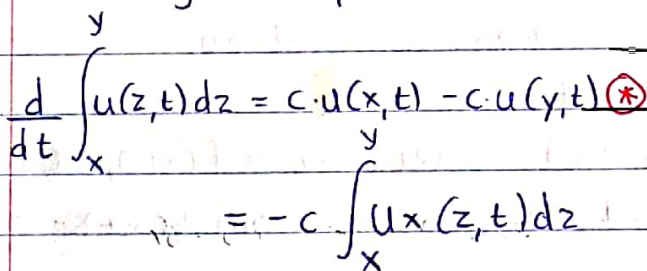 d/dt ∫_x^y u(z,t) dz = c·u(x,t) - c·u(y,t) (*)
= -c ∫_x^y ux (z,t) dz